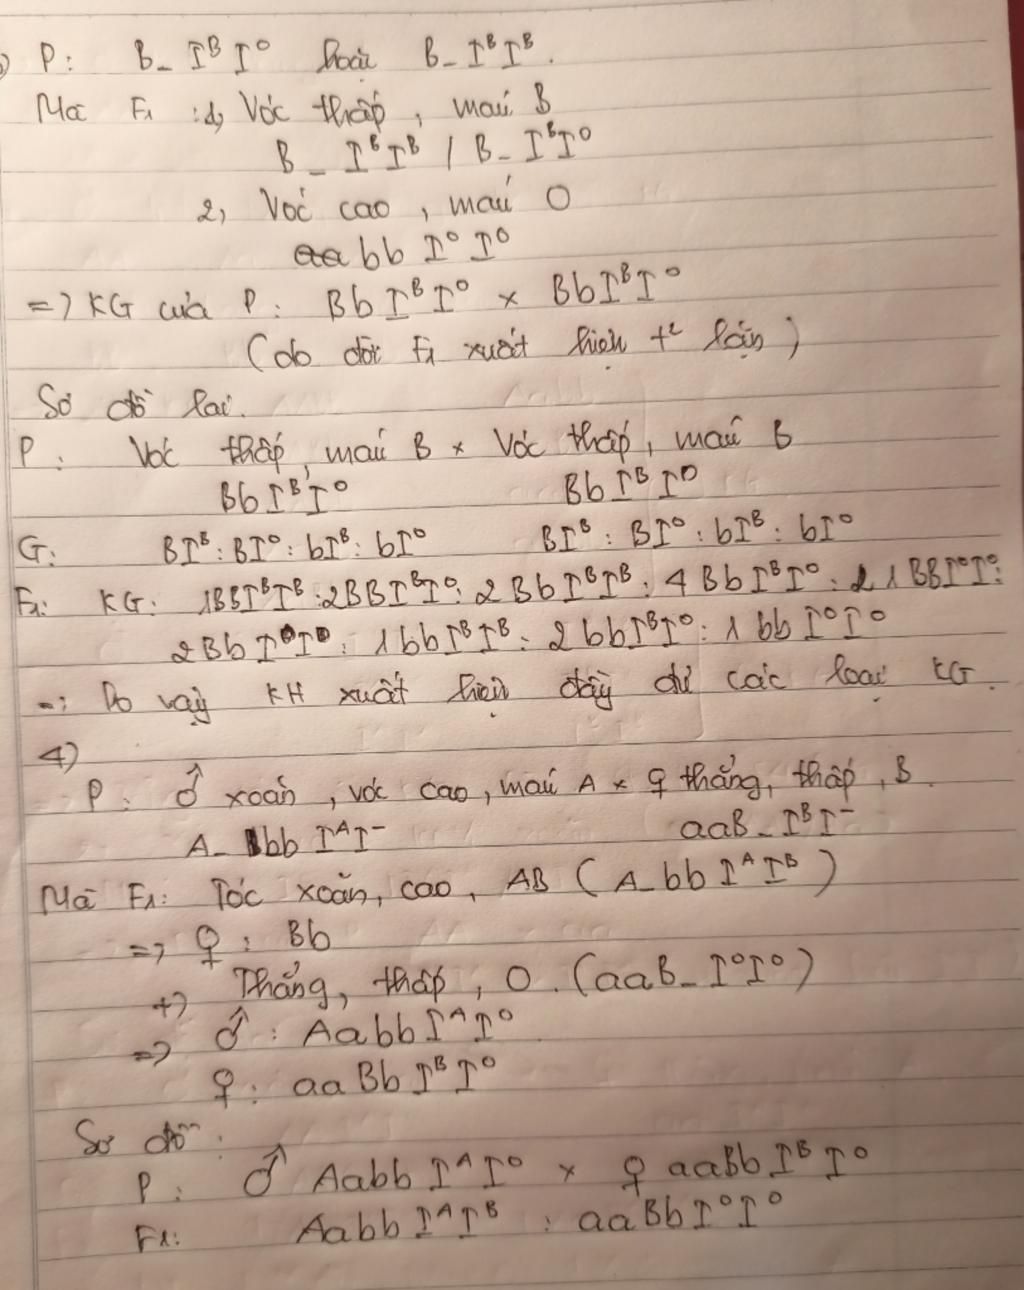 P: B_ IᴮIᴼ hoặc B_ IᴮIᴮ.
Mà F₁ : 1, Vóc thấp, máu B
B_ IᴮIᴮ / B_ IᴮIᴼ
2, Vóc cao, máu O
bb IᴼIᴼ
=> KG của P: BbIᴮIᴼ × BbIᴮIᴼ
(do đời F₁ xuất hiện t² lặn)
Sơ đồ lai.
P: Vóc thấp, máu B × Vóc thấp, máu B
BbIᴮIᴼ BbIᴮIᴼ
G: BIᴮ : BIᴼ : bIᴮ : bIᴼ BIᴮ : BIᴼ : bIᴮ : bIᴼ
F₁: KG: 1BBIᴮIᴮ : 2BBIᴮIᴼ : 2BbIᴮIᴮ : 4BbIᴮIᴼ : 1BBIᴼIᴼ :
2BbIᴼIᴼ : 1bbIᴮIᴮ : 2bbIᴮIᴼ : 1bbIᴼIᴼ
Do vậy KH xuất hiện đầy đủ các loại KG.
4)
P: ♂ xoăn, vóc cao, máu A × ♀ thẳng, thấp, B.
A_ bb IᴬI⁻ aaB_ IᴮI⁻
Mà F₁: Tóc xoăn, cao, AB (A_bb IᴬIᴮ)
=> ♀ : Bb
+) Thẳng, thấp, O. (aaB_IᴼIᴼ)
=> ♂ : AabbIᴬIᴼ
♀ : aaBbIᴮIᴼ
Sơ đồ :
P: ♂ AabbIᴬIᴼ × ♀ aaBbIᴮIᴼ
F₁: AabbIᴬIᴮ : aaBbIᴼIᴼ